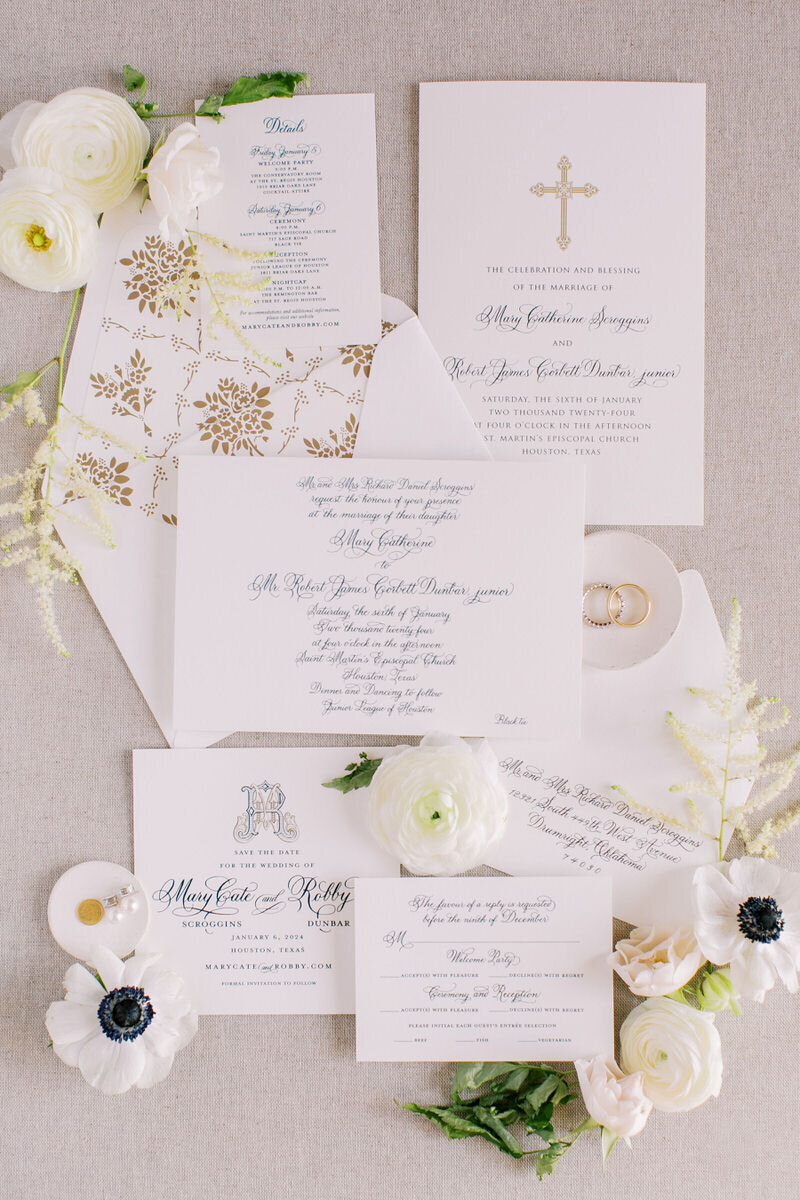 Details
Friday January 5
WELCOME PARTY
THE CONSERVATORY ROOM
AT THE ST. REGIS HOUSTON
1919 BRIAR OAKS LANE
COCKTAIL ATTIRE
Saturday January 6
CEREMONY
4:00 P.M.
SAINT MARTIN'S EPISCOPAL CHURCH
717 SAGE ROAD
BLACK TIE
RECEPTION
FOLLOWING THE CEREMONY
JUNIOR LEAGUE OF HOUSTON
1811 BRIAR OAKS LANE
NIGHTCAP
P.M. TO 12:00 A.M.
THE REMINGTON BAR
AT THE ST. REGIS HOUSTON
For accommodations and additional information,
please visit our website
MARYCATEANDROBBY.COM
THE CELEBRATION AND BLESSING
OF THE MARRIAGE OF
Mary Catherine Scroggins
AND
Robert James Corbett Dunbar, junior
SATURDAY, THE SIXTH OF JANUARY
TWO THOUSAND TWENTY-FOUR
AT FOUR O'CLOCK IN THE AFTERNOON
ST. MARTIN'S EPISCOPAL CHURCH
HOUSTON, TEXAS
Mr. and Mrs Richard Daniel Scroggins
request the honour of your presence
at the marriage of their daughter
Mary Catherine
to
Mr. Robert James Corbett Dunbar, junior
Saturday, the sixth of January
Two thousand twenty-four
at four o'clock in the afternoon
Saint Martin's Episcopal Church
Houston, Texas
Dinner and Dancing to follow
Junior League of Houston
Black tie
Mr. and Mrs Richard Daniel Scroggins
12321 South 449th West Avenue
Drumright, Oklahoma
74030
SAVE THE DATE
FOR THE WEDDING OF
MaryCate and Robby
SCROGGINS DUNBAR
JANUARY 6, 2024
HOUSTON, TEXAS
MARYCATEandROBBY.COM
FORMAL INVITATION TO FOLLOW
The favour of a reply is requested
before the ninth of December
M
Welcome Party
ACCEPT(S) WITH PLEASURE DECLINE(S) WITH REGRET
Ceremony and Reception
ACCEPT(S) WITH PLEASURE DECLINE(S) WITH REGRET
PLEASE INITIAL EACH GUEST'S ENTRÉE SELECTION
BEEF FISH VEGETARIAN